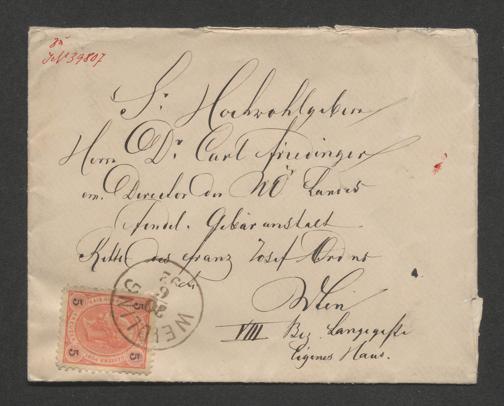 zu
J.N. 39807
Sr. Hochwohlgeboren
Herrn Dr. Carl Friedinger
em. Director der NÖ Landes
Findel. Gebäranstalt
Ritter des Franz Josef Ordens
etc
Wien
VIII Bez. Langegasse
Eigenes Haus.
5 5
5 5